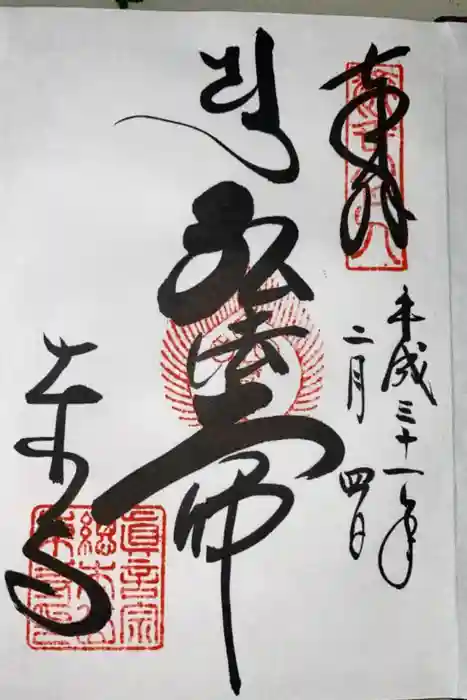 奉拝
平成三十一年
二月 四日
弘法大師
東寺
眞言宗
總本山
東寺印